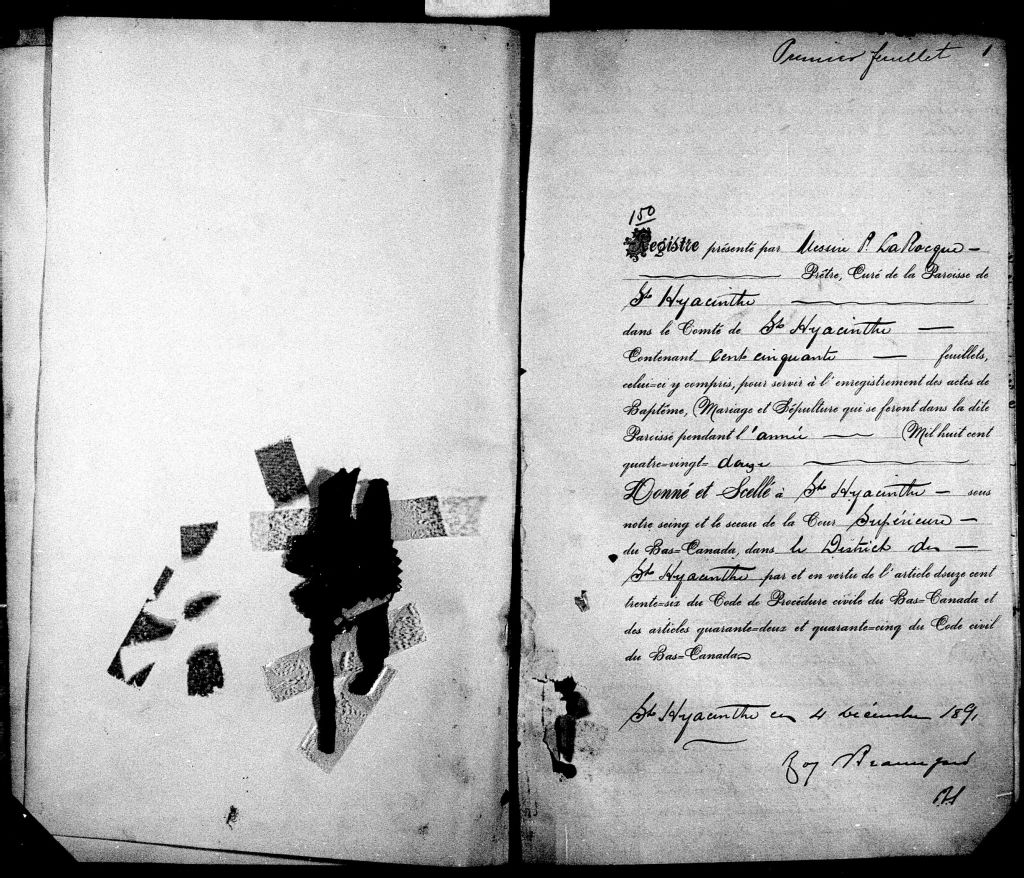 Premier feuillet 1
150
Registre présenté par Messire P. LaRocque —
Prêtre, Curé de la Paroisse de
St Hyacinthe
dans le Comté de St Hyacinthe —
Contenant Cent cinquante — feuillets,
celui=ci y compris, pour servir à l'enregistrement des actes de
Baptême, Mariage et Sépulture qui se feront dans la dite
Paroisse pendant l'année — Mil huit cent
quatre=vingt= douze
Donné et Scellé à St Hyacinthe — sous
notre seing et le sceau de la Cour Supérieure —
du Bas=Canada, dans le District de —
St Hyacinthe par et en vertu de l'article douze cent
trente=six du Code de Procédure civile du Bas=Canada et
des articles quarante=deux et quarante=cinq du Code civil
du Bas=Canada
St Hyacinthe ce 4 décembre 1891
Roy Beauregard